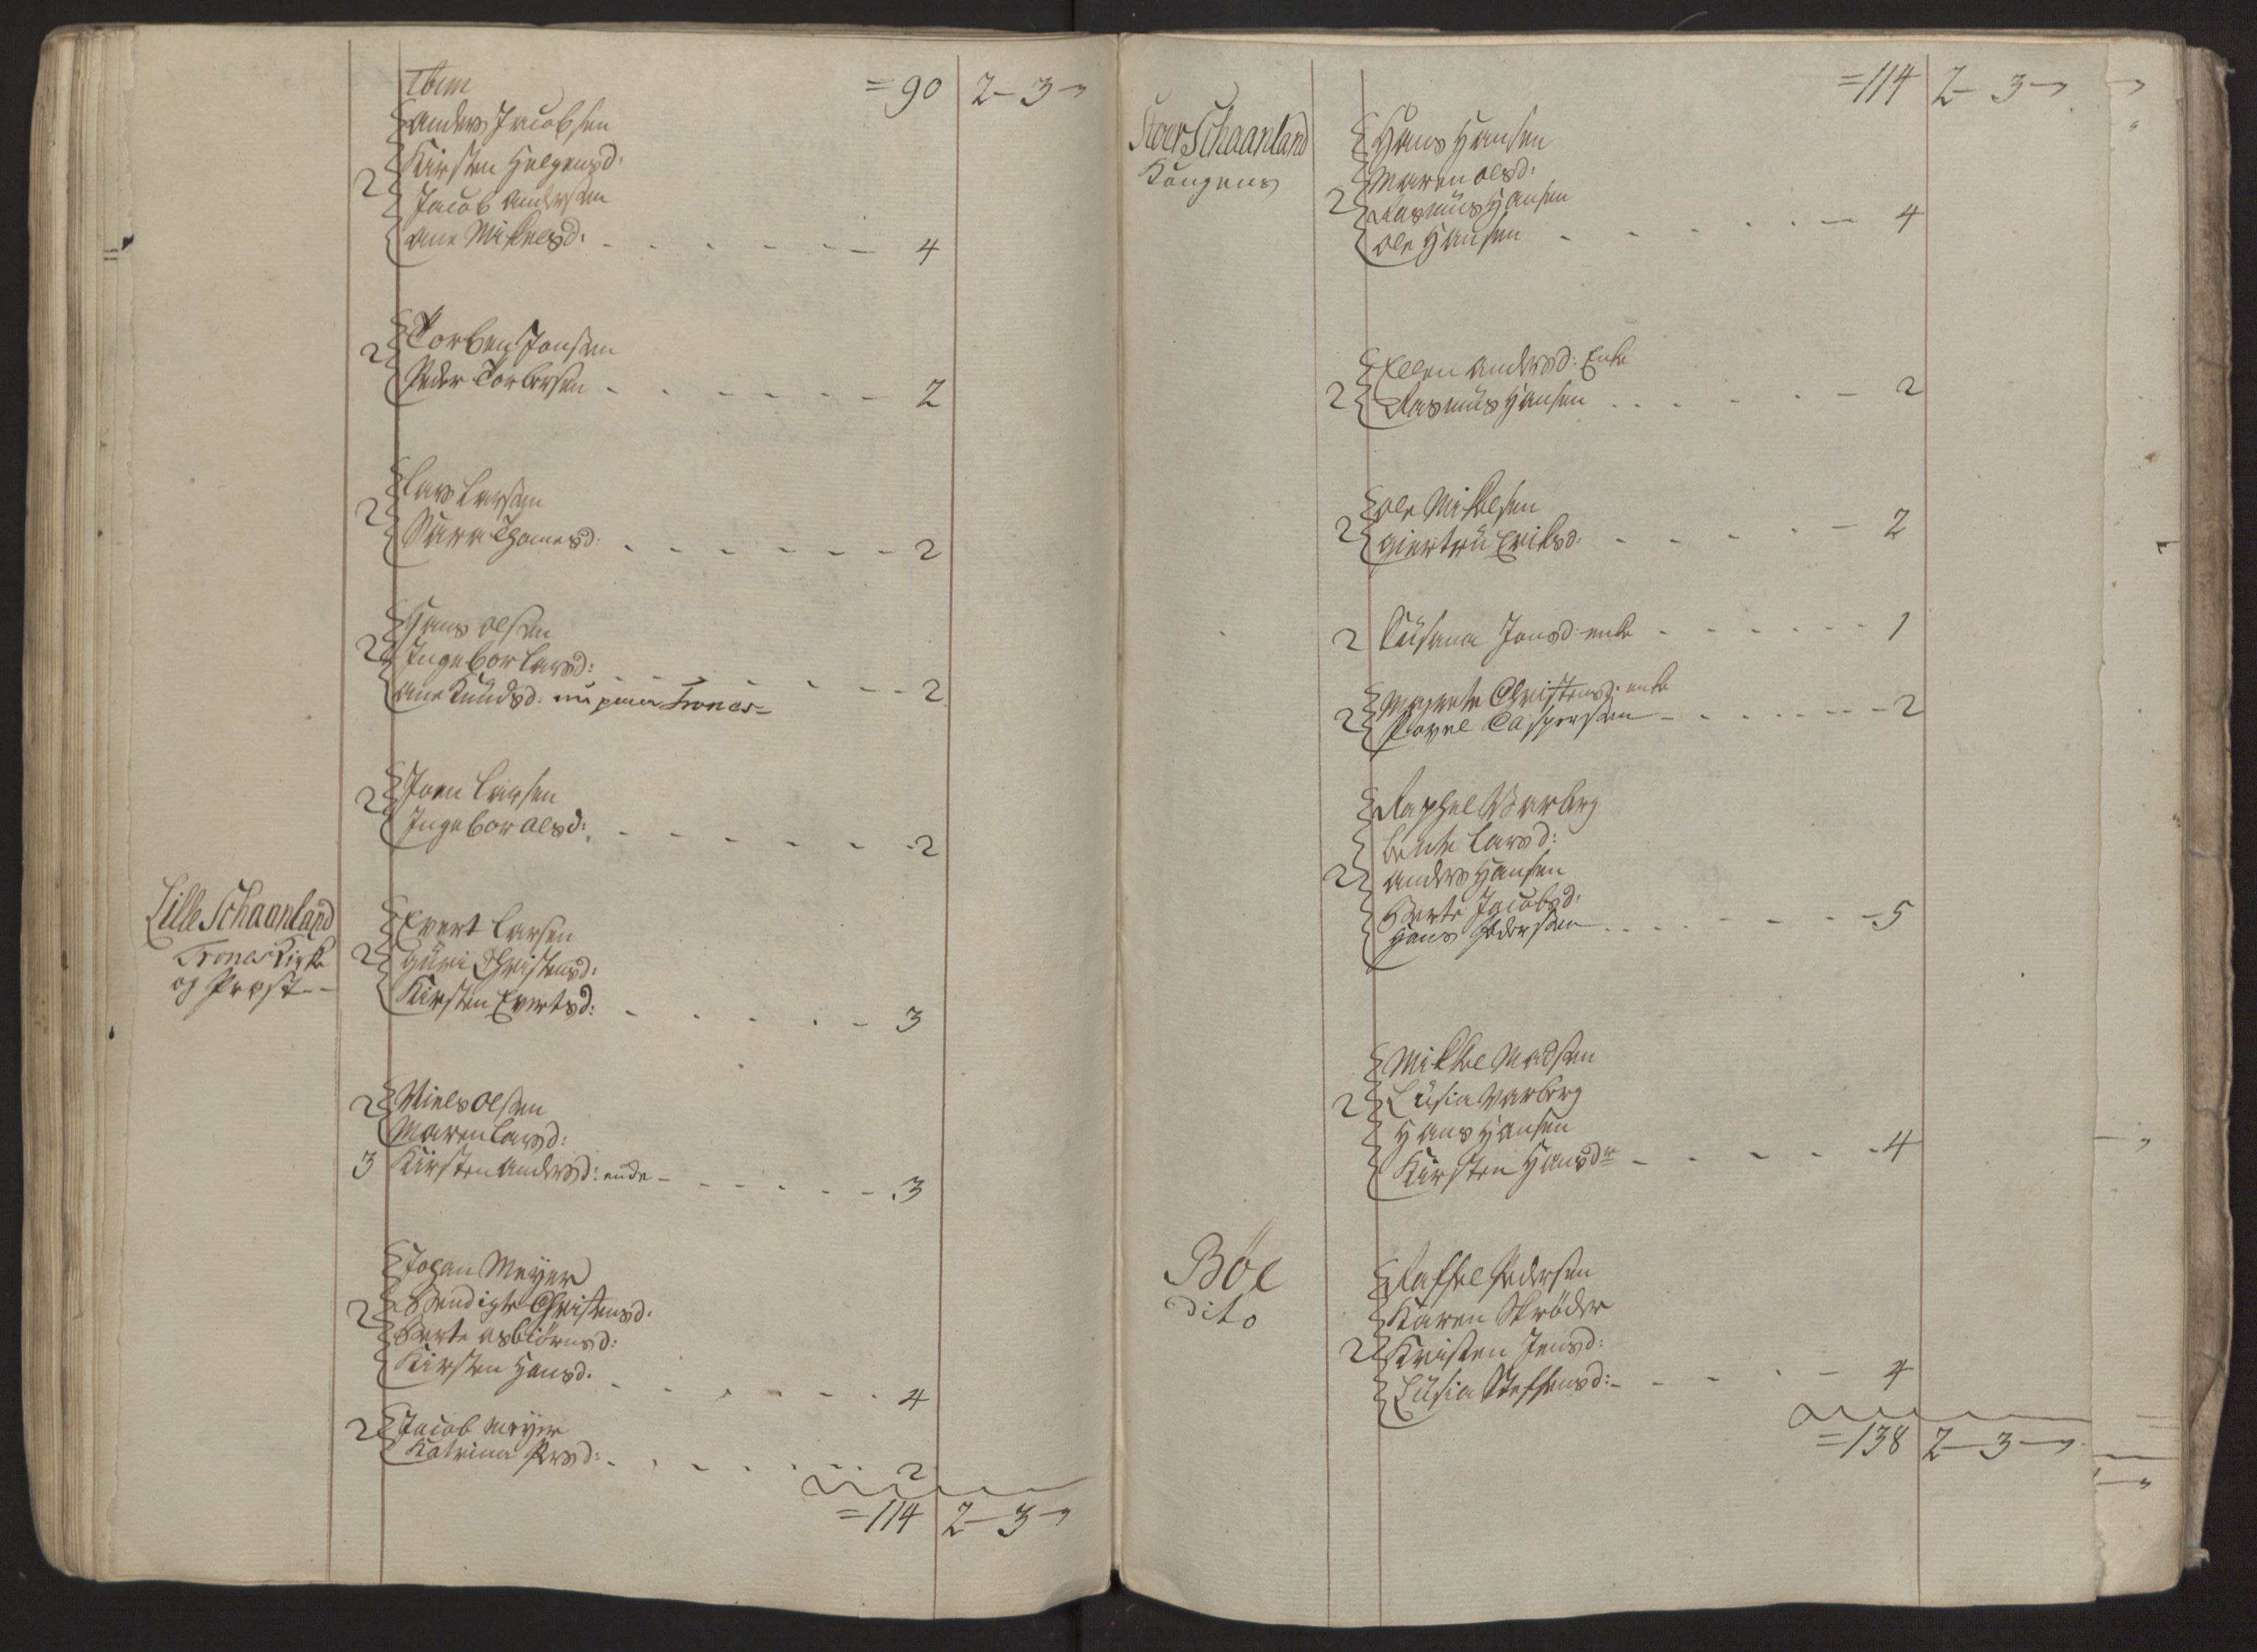 Tbem = 90 2 - 3 -
Anders Jacobsen
Kirsten Helgensd:
2 Jacob Andersen
Ane Mikelsd: - - - - - - 4
Torben Jonsen
2 Peder Torbersen - - - - - - 2
Lars Larsen
2 Sara Thomesd: - - - - - - 2
Hans Olsen
2 Ingebor Larsd: - - - - - - 2
Ane Knudsd: Trones=
2 Joen Larsen
Ingebor Olsd: - - - - - - 2
Lille Schaanland
Trones Kirke
og Præst --
Evert Larsen
2 Guri Christensd:
Kirsten Evertsd: - - - - - 3
2 Niels Olsen
Maren Larsd:
3 Kirsten Andersd: - - - - - - 3
Johan Meÿer
2 Bendigte Christensd.
Berte Asbiörnsd:
Kirsten Hansd. - - - - - - 4
2 Jacob Meÿer
Katrina Persd: - - - - - 2
= 114 2 - 3 -
= 114 2 - 3 -
Stoer Schaanland
Kongens
Hans Hansen
Maren Olsd:
2 Rasmus Hansen
Ole Hansen - - - - - - 4
Ellen Andersd: Enke
2 Rasmus Hansen - - - - - 2
Ole Mikelsen
2 Giertru Eriksd: - - - - - 2
2 Susana Jonsd: enke - - - - - - 1
Magrete Christensd: enke
2 Povel Caspersen - - - - - - 2
Raphel Warberg
Bente Larsd:
2 Anders Hansen
Berte Jacobsd:
Hans Pedersen - - - - - - 5
Mikkel Madsen
2 Lusia Warberg
Hans Hansen
Kirsten Hansdr - - - - - 4
Böe
dito
Raffel Pedersen
Karen Schröder
2 Kristen Jensd:
Lusia Steffensd: - - - - - 4
= 138 2 - 3 -